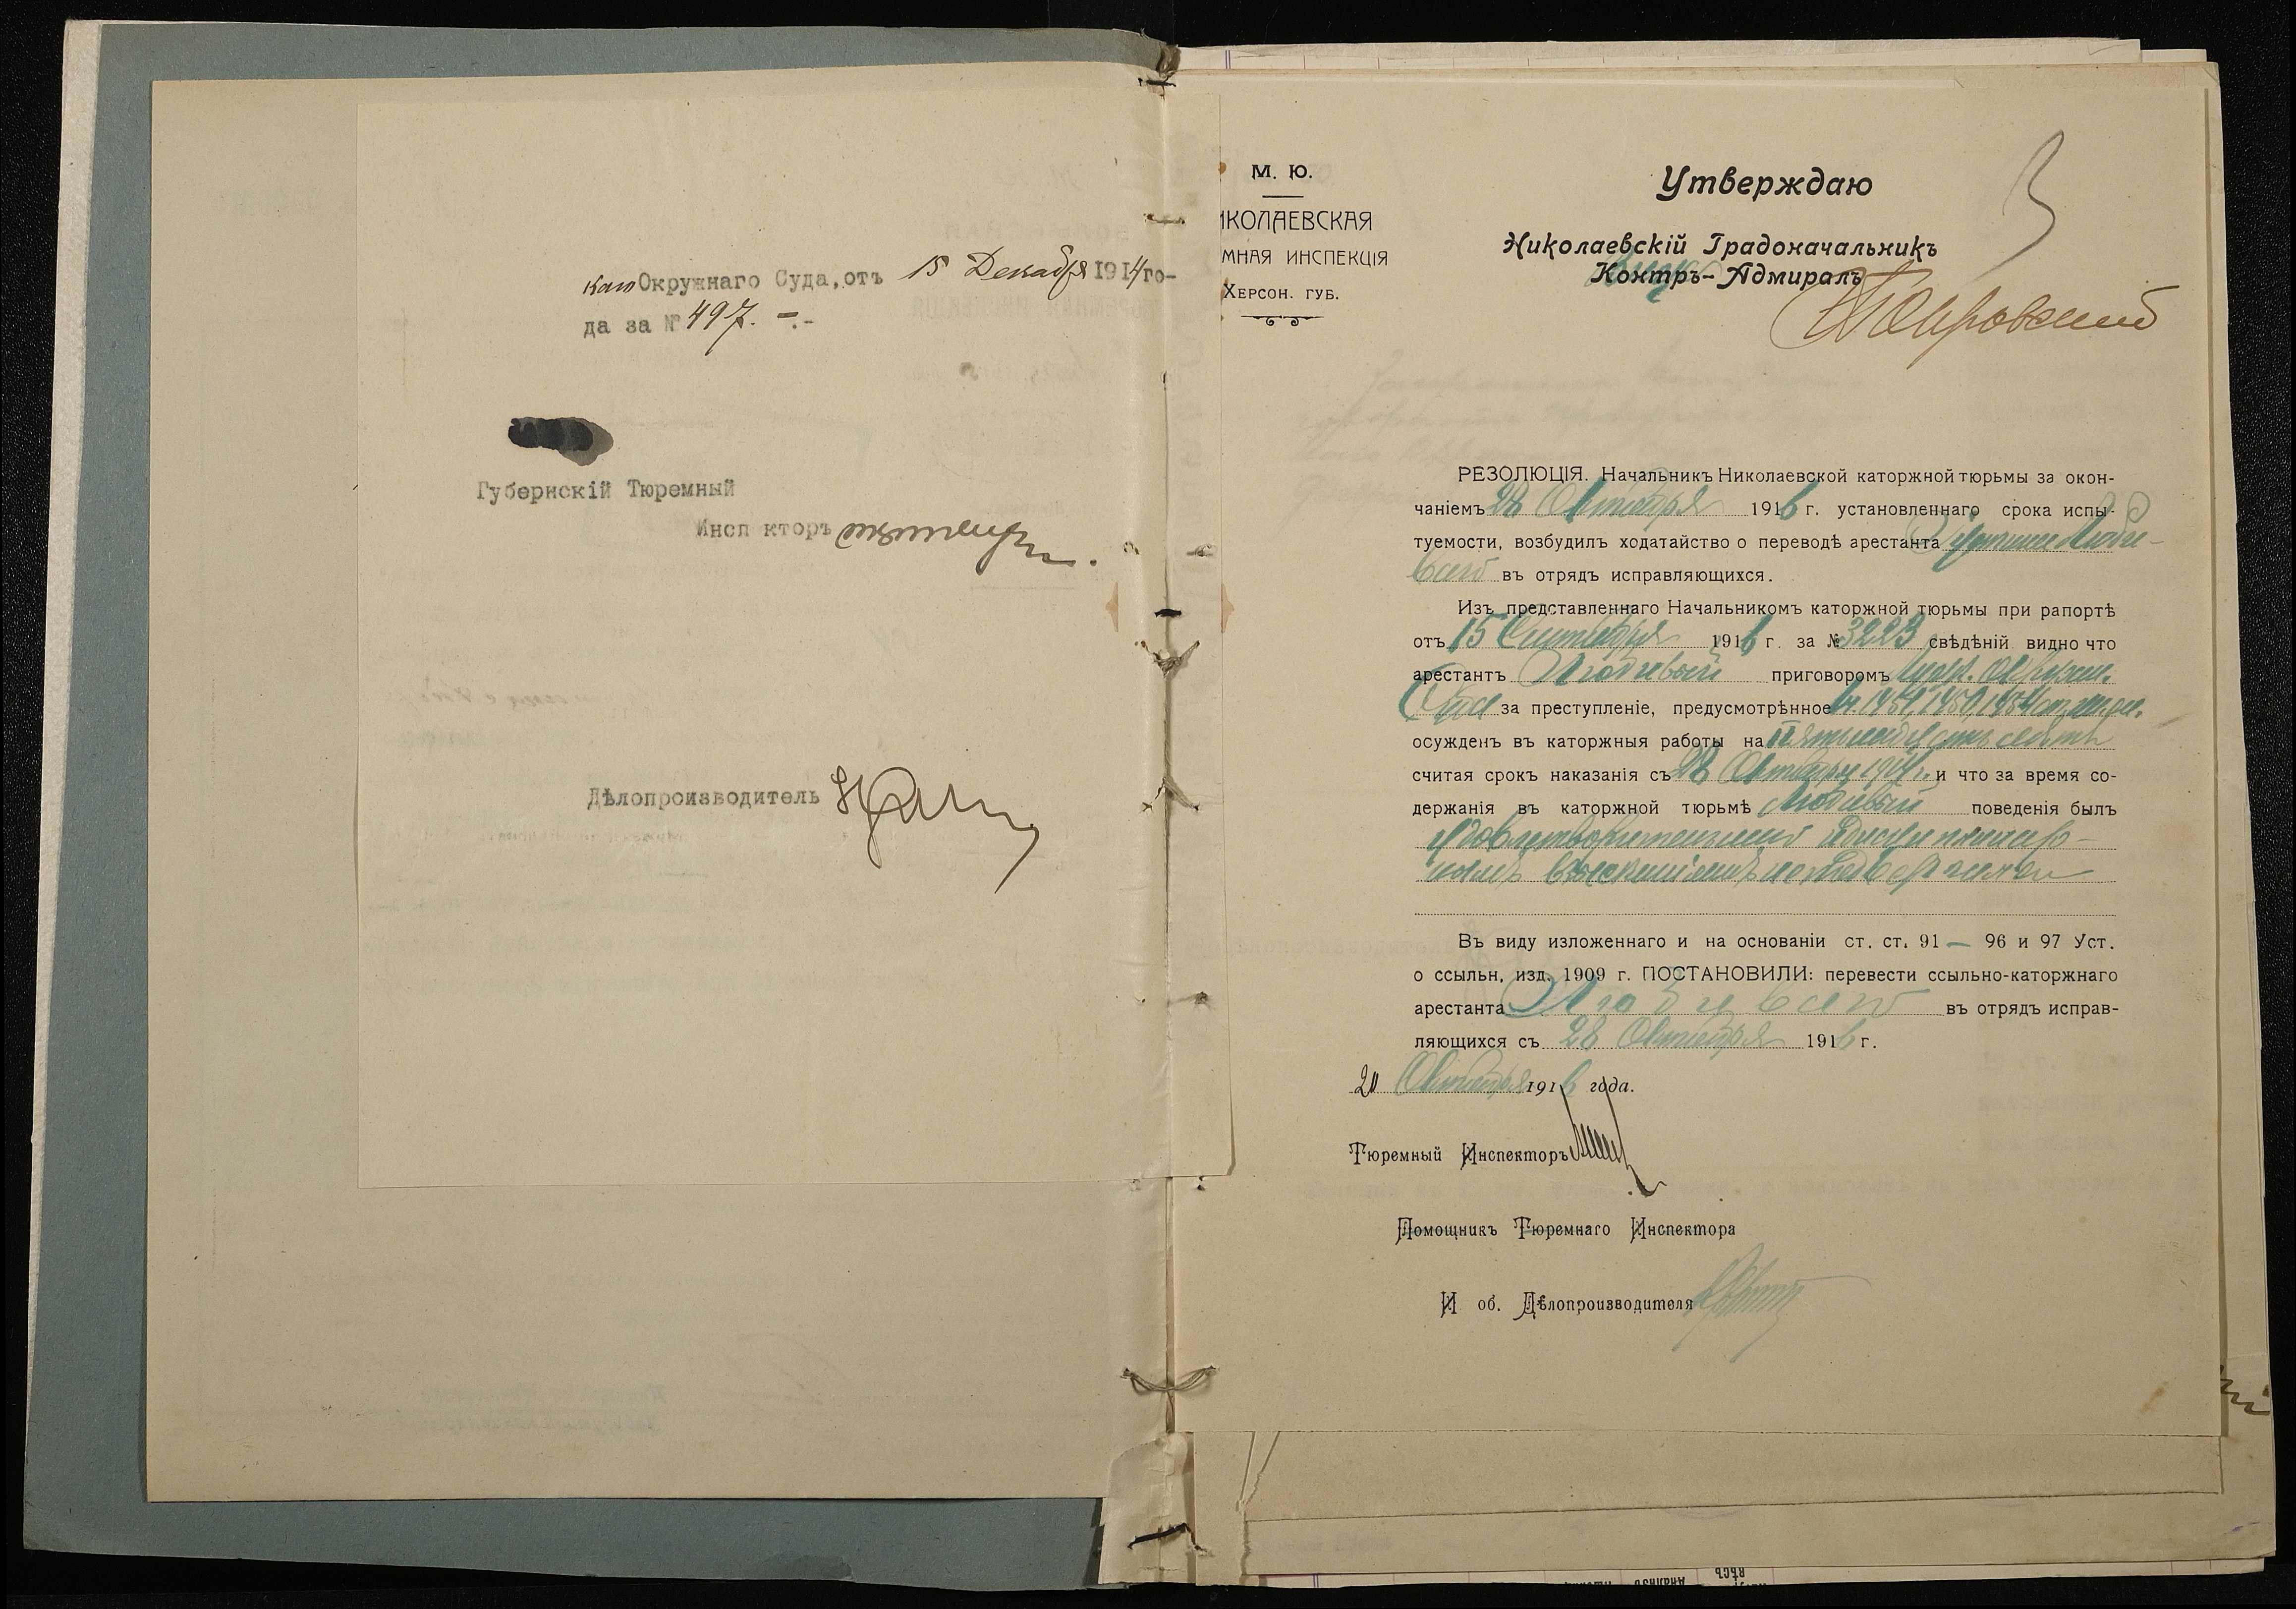 каго Окружнаго Суда, отъ 15 Декабря 1914 го-
да за № 497. -.-
Губернскій Тюремный
Инсп кторъ
Дѣлопроизводитель
М. Ю.
ИКОЛАЕВСКАЯ
МНАЯ ИНСПЕКЦІЯ
ХЕРСОН. ГУБ.
Утверждаю
Николаевскій Градоначальникъ
Контръ-Адмиралъ
РЕЗОЛЮЦІЯ. Начальникъ Николаевской каторжной тюрьмы за окон-
чаніемъ 28 Октября 1916 г. установленнаго срока испы-
туемости, возбудилъ ходатайство о переводѣ арестанта
въ отрядъ исправляющихся.
Изъ представленнаго Начальникомъ каторжной тюрьмы при рапортѣ
отъ 15 Сентября 1916 г. за № 3223 свѣдѣній видно что
арестантъ приговоромъ
Суда за преступленіе, предусмотрѣнное
осужденъ въ каторжныя работы на
считая срокъ наказанія съ 28 Октября 1914 г. и что за время со-
держанія въ каторжной тюрьмѣ поведенія былъ
удовлетворительнаго дисциплинар-
нымъ взысканіямъ не подвергался
Въ виду изложеннаго и на основаніи ст. ст. 91 — 96 и 97 Уст.
о ссыльн, изд. 1909 г. ПОСТАНОВИЛИ: перевести ссыльно-каторжнаго
арестанта въ отрядъ исправ-
ляющихся съ 28 Октября 1916 г.
20 Октября 1916 года.
Тюремный Инспекторъ
Помощникъ Тюремнаго Инспектора
И об. Дѣлопроизводителя